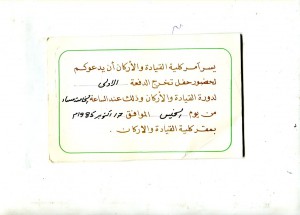 يسر آمر كلية القيادة والأركان أن يدعوكم
لحضور حفل تخرج الدفعة الأولى
لدورة القيادة والأركان وذلك عند الساعة
من يوم الخميس الموافق 17 أكتوبر 1985 م
بمقر كلية القيادة والأركان .